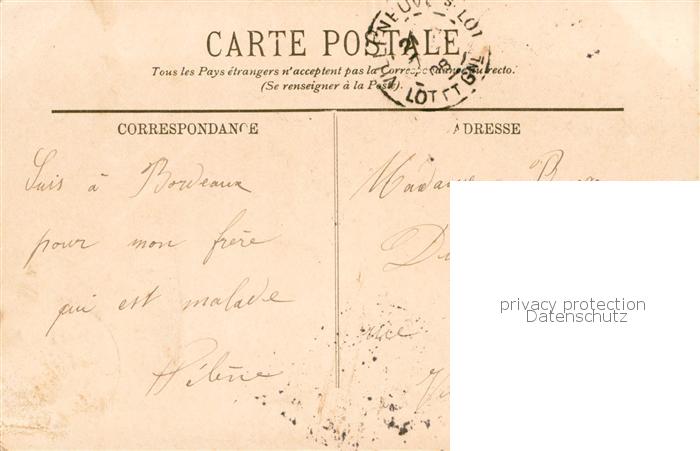 CARTE POSTALE
Tous les Pays étrangers n'acceptent pas la Correspondance au recto.
(Se renseigner à la Poste).
VILLENEUVE S. LOT
LOT ET GNE
CORRESPONDANCE
ADRESSE
Suis à Bordeaux
pour mon frère
qui est malade
Hélène
Madame
privacy protection
Datenschutz